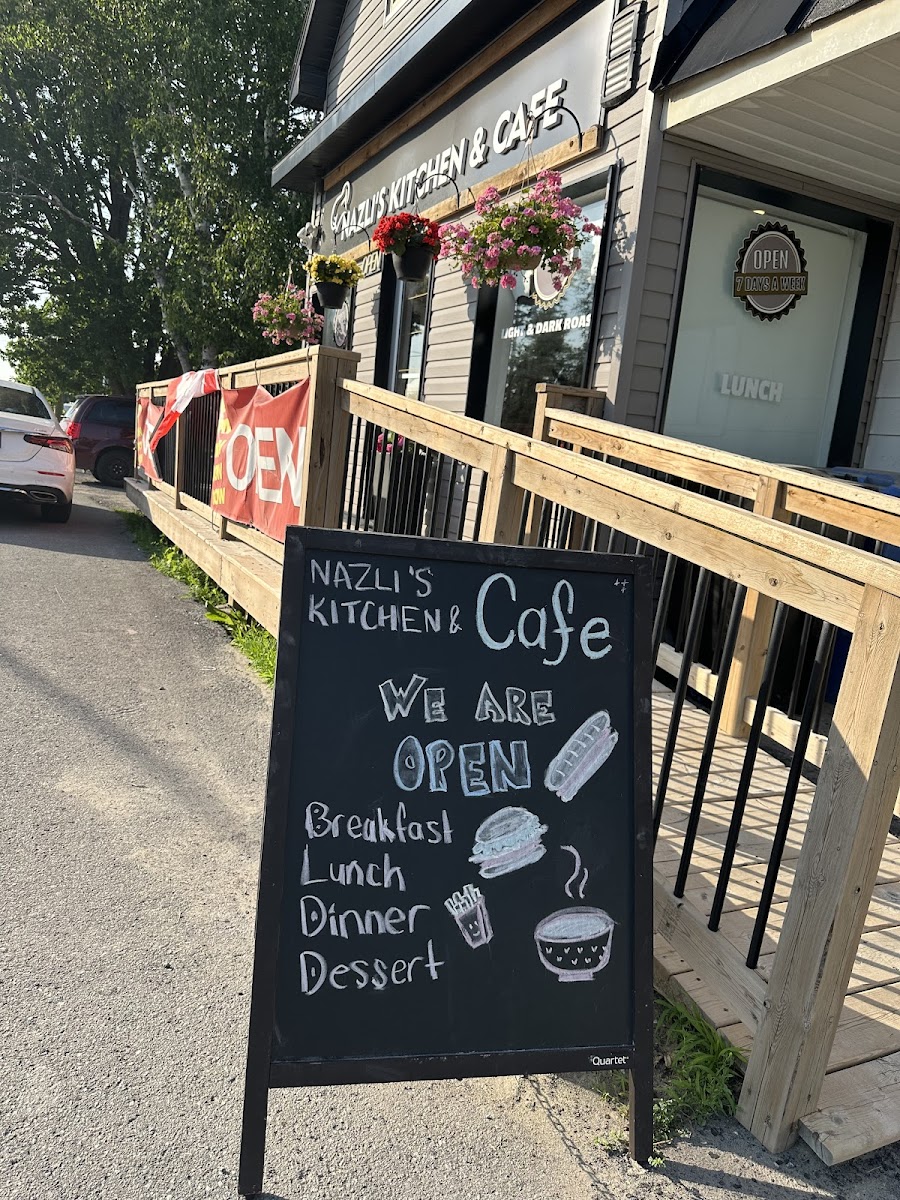 NAZLI'S KITCHEN & CAFE
OPEN
7 DAYS A WEEK
LIGHT & DARK ROAST
LUNCH
OPEN
NAZLI'S
KITCHEN & Cafe
WE ARE
OPEN
Breakfast
Lunch
Dinner
Dessert
Quartet